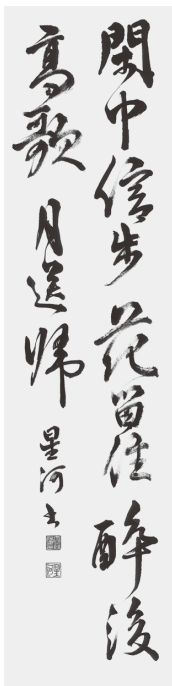 閑中信步花留住醉後
高歌月送歸
星河书